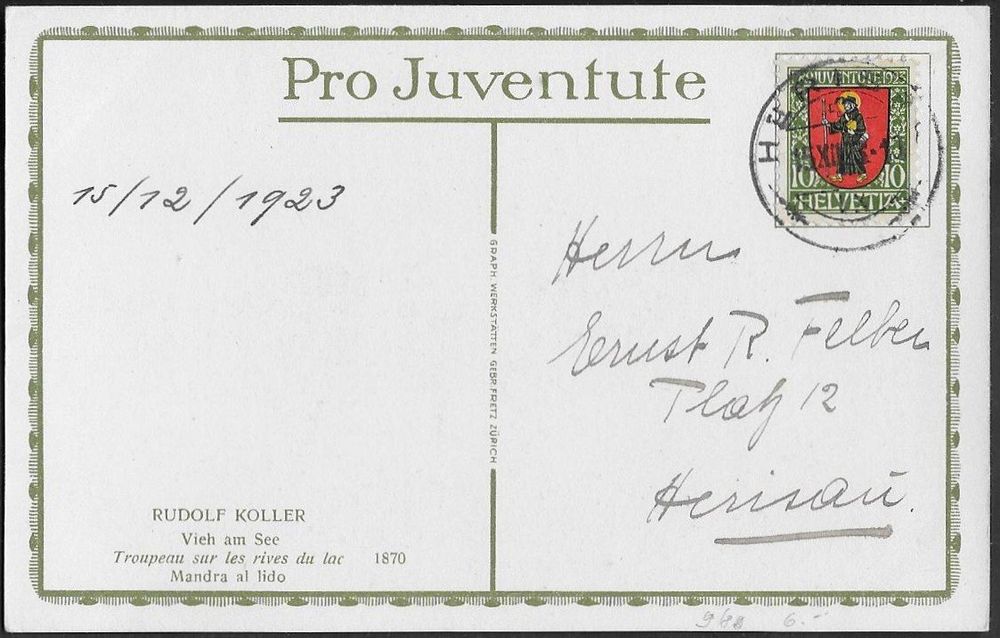 Pro Juventute
PRO JUVENTUTE 1923
10 10
HELVETIA
15/12/1923
GRAPH. WERKSTÄTTEN GEBR. FRETZ ZÜRICH
Herrn
Ernst R. Felber
Platz 12
Herisau.
RUDOLF KOLLER
Vieh am See
Troupeau sur les rives du lac 1870
Mandra al lido
6.-